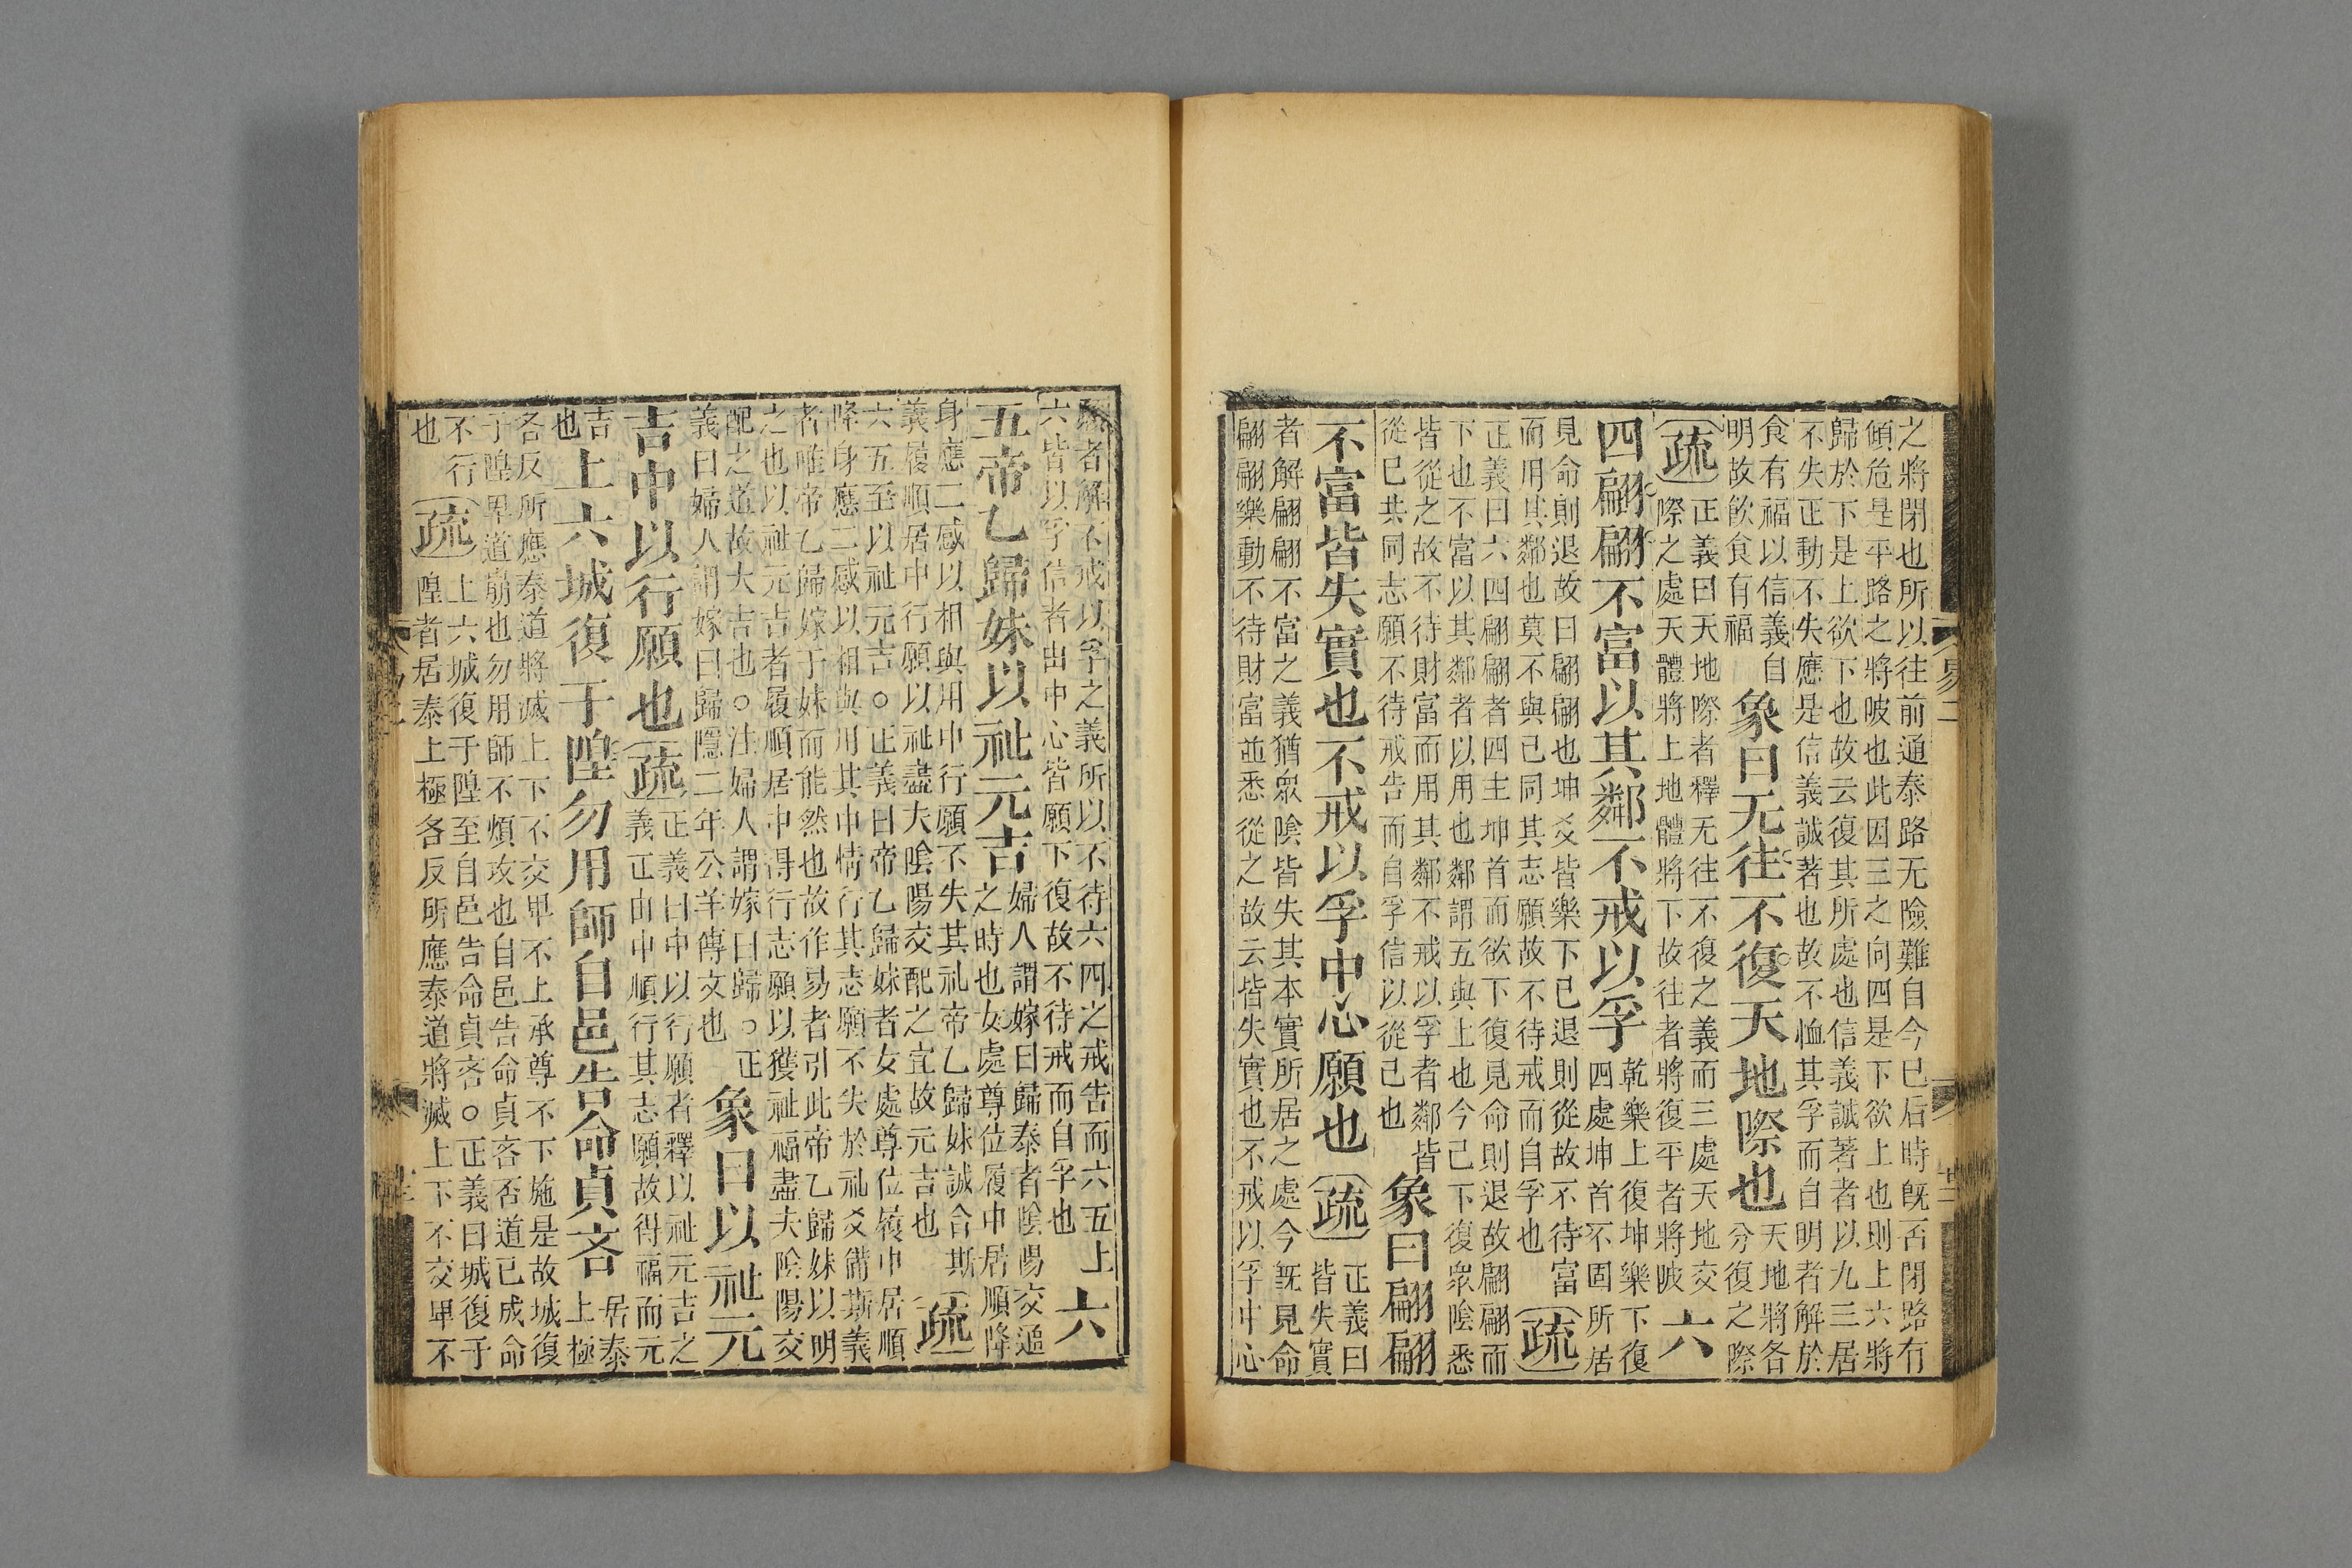 之將閉也所以往前通泰路无險難自今已后時旣否閉路有
傾危是平路之將陂也此因三之向四是下欲上也則上六將
歸於下是上欲下也故云復其所處也信義誠著者以九三居
不失正動不失應是信義誠著也故不恤其孚而自明者解於
食有福以信義自
明故飮食有福
象曰无往不復天地際也
天地將各
分復之際
疏
正義曰天地際者釋无往不復之義而三處天地交
際之處天體將上地體將下故往者將復平者將陂
六
四翩翩不富以其鄰不戒以孚
乾樂上復坤樂下復
四處坤首不固所居
見命則退故曰翩翩也坤爻皆樂下已退則從故不待富
而用其鄰也莫不與已同其志願故不待戒而自孚也
疏
正義曰六四翩翩者四主坤首而欲下復見命則退故翩翩而
下也不富以其鄰者以用也鄰謂五與上也今己下復衆陰悉
皆從之故不待財富而用其鄰不戒以孚者鄰皆
從已共同志願不待戒告而自孚信以從己也
象曰翩翩
不富皆失實也不戒以孚中心願也
疏
正義曰
皆失實
者解翩翩不富之義猶衆陰皆失其本實所居之處今旣見命
翩翩樂動不待財富並悉從之故云皆失實也不戒以孚中心
願者解不戒以孚之義所以不待六四之戒告而六五上
六皆以孚信者由中心皆願下復故不待戒而自孚也
六
五帝乙歸妹以祉元吉
婦人謂嫁曰歸泰者陰陽交通
之時也女處尊位履中居順降
身應二感以相與用中行願不失其禮帝乙歸妹誠合斯
義履順居中行願以祉盡夫陰陽交配之宜故元吉也
疏
六五至以祉元吉○正義曰帝乙歸妹者女處尊位履中居順
降身應二感以相與用其中情行其志願不失於禮爻備斯義
者唯帝乙歸嫁于妹而能然也故作易者引此帝乙歸妹以明
之也以祉元吉者履順居中得行志願以獲祉福盡夫陰陽交
配之道故大吉也○注婦人謂嫁曰歸○正
義曰婦人謂嫁曰歸隱二年公羊傳文也
象曰以祉元
吉中以行願也
疏
正義曰中以行願者釋以祉元吉之
義正由中順行其志願故得福而元
吉
也
上六城復于隍勿用師自邑告命貞吝
居泰
上極
各反所應泰道將滅上下不交卑不上承尊不下施是故城復
于隍卑道崩也勿用師不煩攻也自邑告命貞吝否道已成命
不行
也
疏
上六城復于隍至自邑告命貞吝○正義曰城復于
隍者居泰上極各反所應泰道將滅上下不交卑不